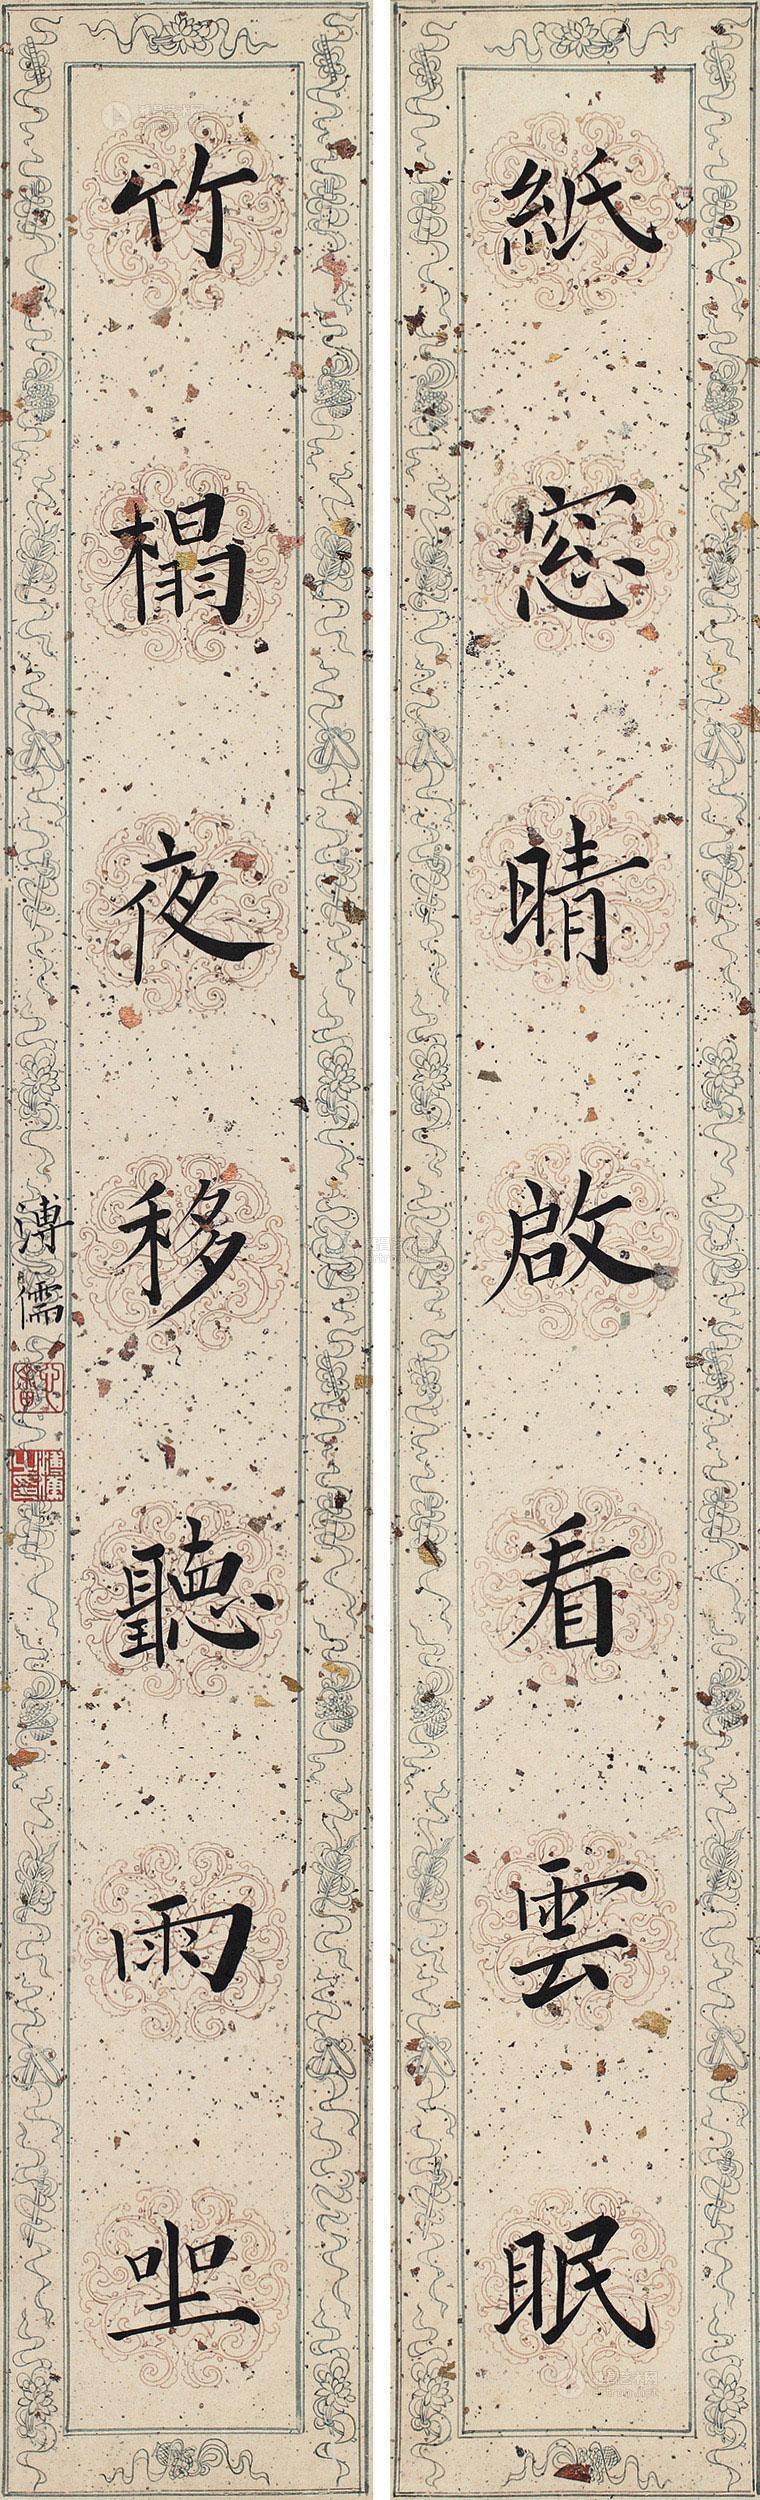 紙窓晴啟看雲眠
竹榻夜移聽雨坐
溥儒